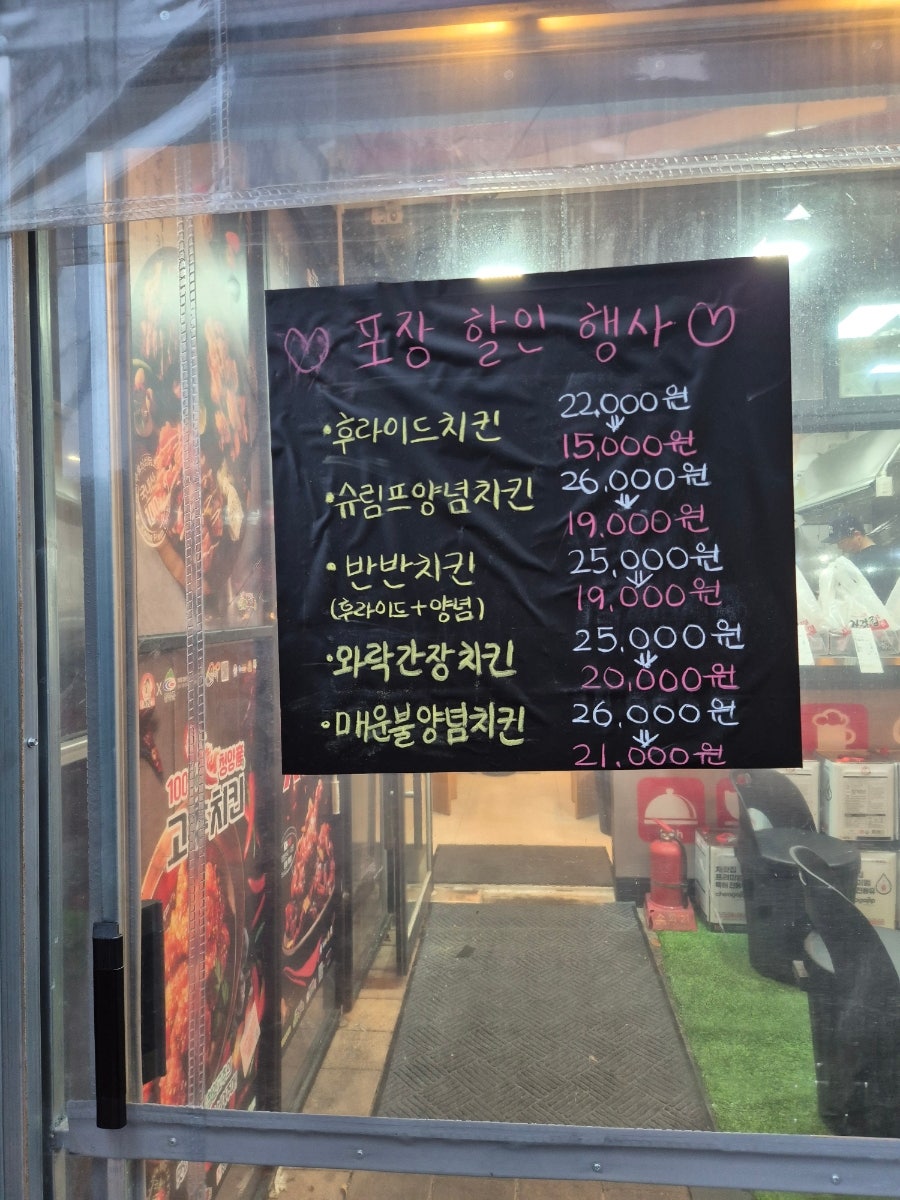 ♡ 포장 할인 행사 ♡
·후라이드치킨 22,000원
⇓
15,000원
·슈림프양념치킨 26,000원
⇓
19,000원
·반반치킨 25,000원
⇓
(후라이드+양념) 19,000원
·와락간장치킨 25,000원
⇓
20,000원
·매운불양념치킨 26,000원
⇓
21,000원
100
청양高
고 치킨
cheogajip